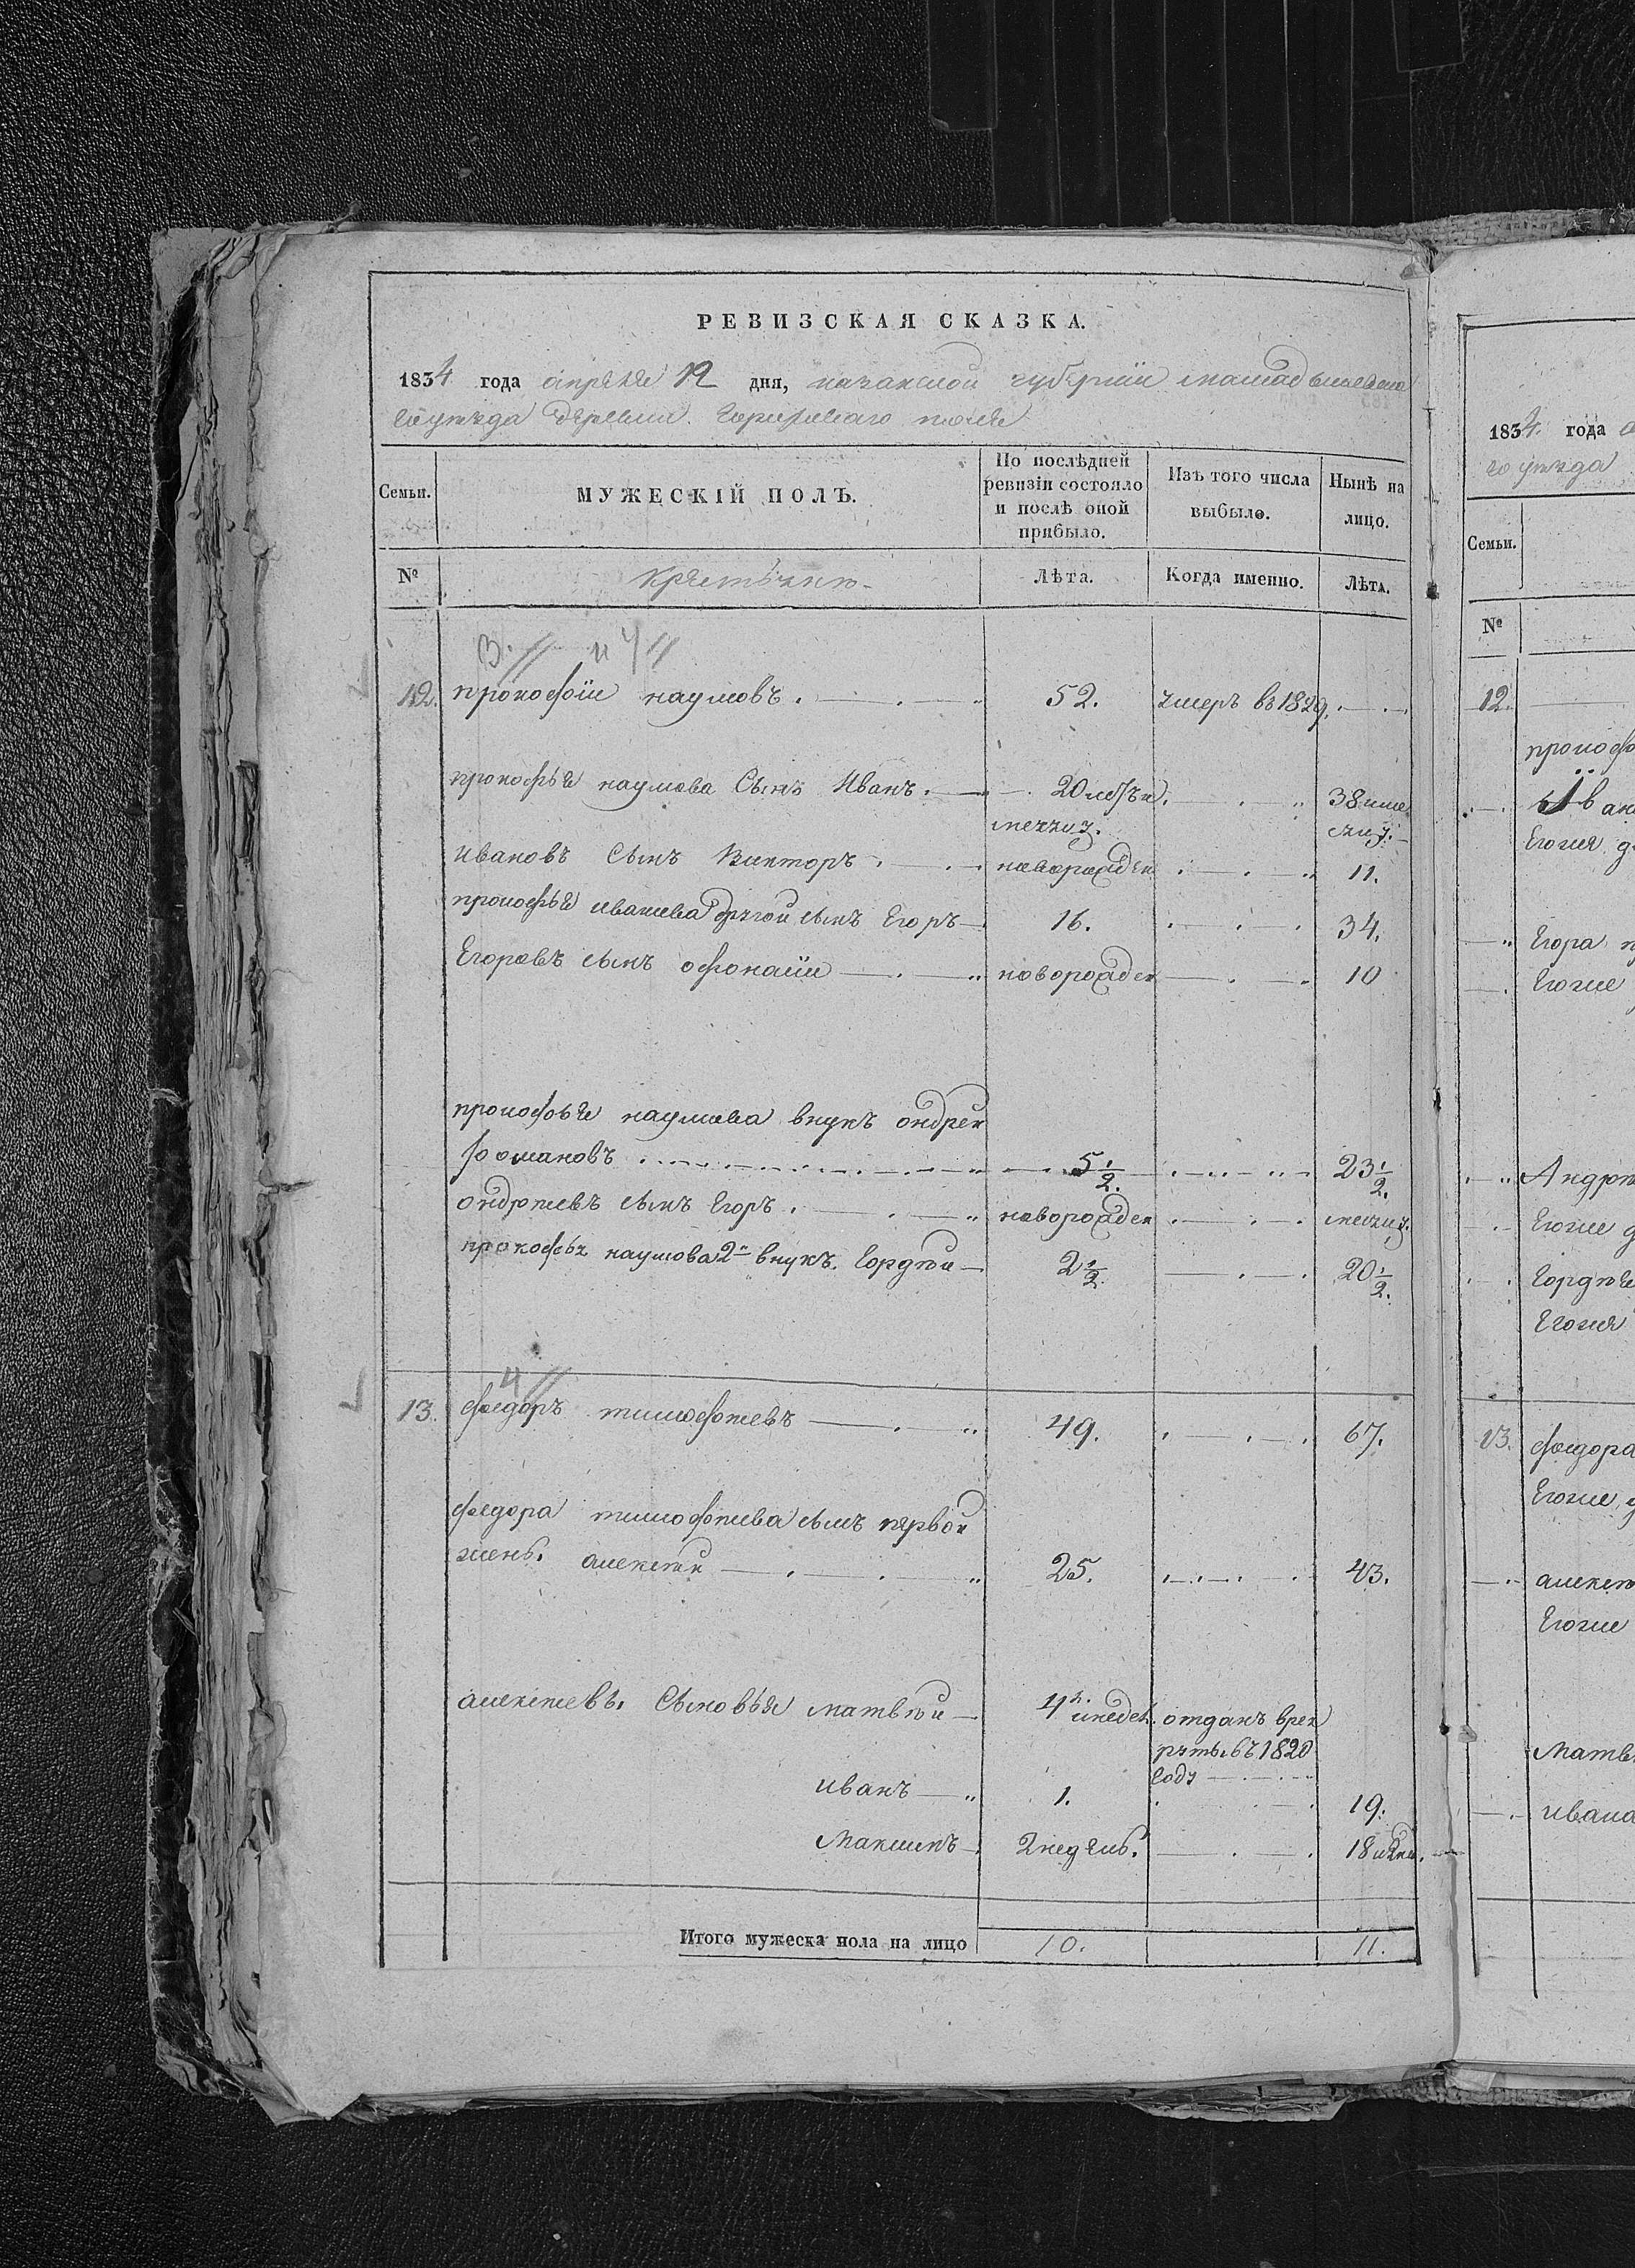 РЕВИЗСКАЯ СКАЗКА.
1834 года апреля 12 дня, казанской губернии мамадышскаго
го уезда деревни. Горитоваго поля
Семьи.
МУЖЕСКІЙ ПОЛЪ.
По послѣдней ревизіи состояло и послѣ оной прибыло.
Изъ того числа выбыло.
Нынѣ на лицо.
№
Крестьянъ
Лѣта.
Когда именно.
Лѣта.
3. // и 4 //
12. прокофіи наумовъ. 52. умеръ въ 1829.
прокофья наумова Сынъ Иванъ. 20
38
ивановъ Сынъ Викторъ. новорожден 11.
прокофья иванова другой сынъ Егоръ 16. 34.
Егоровъ сынъ офонасіи новорожден 10
прокофья наумова внукъ ондреи
романовъ 5 1/2. 23 1/2.
ондреевъ сынъ Егоръ. новорожден месяцу.
прокофья наумова 2й внукъ. Гордѣи 2 1/2 20 1/2.
4 //
13. федоръ тимофѣевъ 49. 67.
федора тимофѣева сынъ первой
жены. алексѣи 25. 43.
алексѣевы. Сыновья матвѣи 4х недел. отданъ врек
руты въ 1820
году
иванъ 1. 19.
Максимъ 2 недѣль. 18
Итого мужеска пола на лицо 10. 11.
1834. года
го уезда
Семьи.
№
12.
прокофь
Иван
Егора
Андр
Гордѣ
13. федора
алексѣ
Матв
ивана